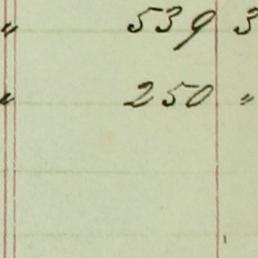 „ 539 3
„ 250 „